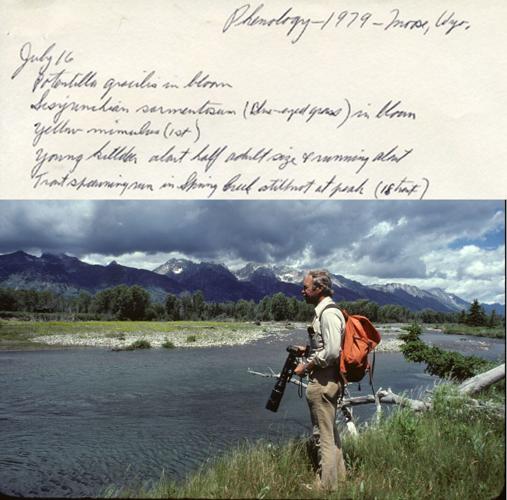 Phenology - 1979 - Moose, Wyo.
July 16
Potentilla gracilis in bloom
Sisyrinchium sarmentosum (Blue-eyed grass) in bloom
Yellow mimulus (1st)
Young killdeer about half adult size & running about
Trout spawning run in Spring Creek still not at peak (18 trout)